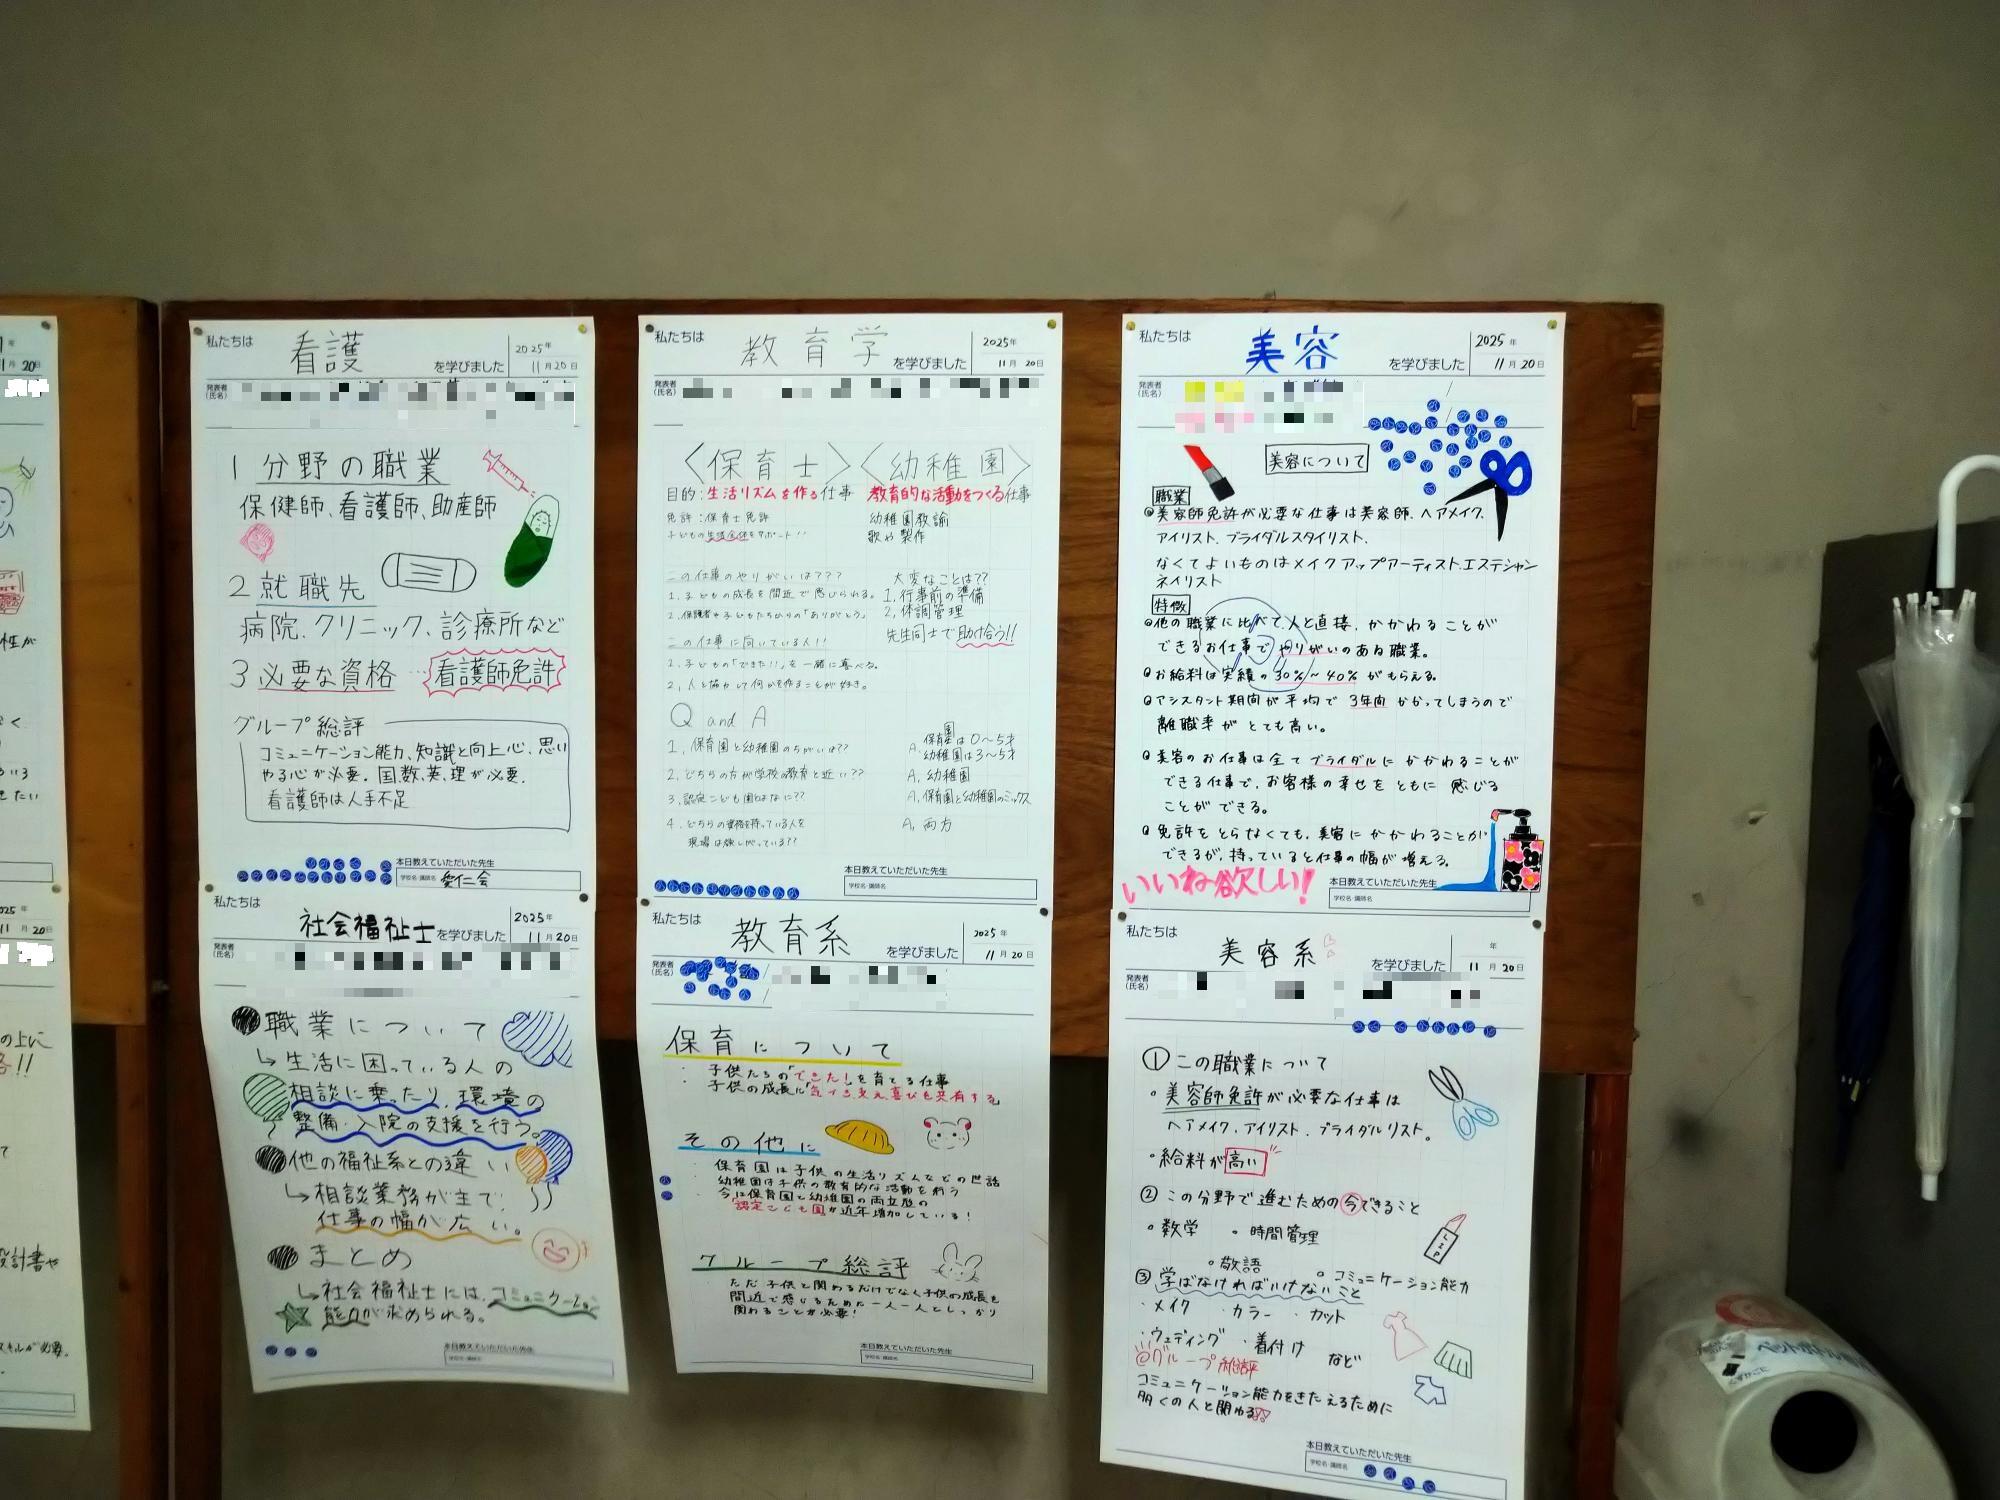 私たちは 看護 を学びました 2025年 11月20日
発表者(氏名)
1 分野の職業
保健師、看護師、助産師
2 就職先
病院、クリニック、診療所など
3 必要な資格 … 看護師免許
グループ総評
コミュニケーション能力、知識と向上心、思い
やる心が必要。国、数、英、理が必要。
看護師は人手不足
本日教えていただいた先生
学校名・講師名 愛仁会
私たちは 教育学 を学びました 2025年 11月20日
発表者(氏名)
〈保育士〉〈幼稚園〉
目的:生活リズムを作る仕事 教育的な活動をつくる仕事
免許:保育士免許 幼稚園教諭
子どもの生活全体をサポート!! 歌や製作
この仕事のやりがいは??? 大変なことは??
1. 子どもの成長を間近で感じられる。 1, 行事前の準備
2. 保護者や子どもたちからの「ありがとう」 2, 体調管理
この仕事に向いている人!! 先生同士で助け合う!!
1. 子どもの「できた!!」を一緒に喜べる。
2, 人と協力して何かを作ることが好き。
Q and A
1, 保育園と幼稚園のちがいは?? A, 保育園は0〜5才
幼稚園は3〜5才
2, どちらの方が学校の教育と近い?? A, 幼稚園
3, 認定こども園とはなに?? A, 保育園と幼稚園のミックス
4. どちらの資格を持っている人を A, 両方
現場は欲しがっている??
本日教えていただいた先生
学校名・講師名
私たちは 美容 を学びました 2025年 11月20日
発表者(氏名)
美容について
職業
美容師免許が必要な仕事は美容師、ヘアメイク、
アイリスト、ブライダルスタイリスト、
なくてよいものはメイクアップアーティスト、エステシャン
ネイリスト
特徴
他の職業に比べて、人と直接、かかわることが
できるお仕事で やりがいのある職業。
お給料は実績の30%〜40%がもらえる。
アシスタント期間が平均で3年間かかってしまうので
離職率がとても高い。
美容のお仕事は全てブライダルにかかわることが
できる仕事で、お客様の幸せをともに感じる
ことができる。
免許をとらなくても、美容にかかわることが
できるが、持っていると仕事の幅が増える。
いいね欲しい!
本日教えていただいた先生
学校名・講師名
私たちは 社会福祉士 を学びました 2025年 11月20日
発表者(氏名)
職業について
↳生活に困っている人の
相談に乗ったり、環境の
整備・入院の支援を行う。
他の福祉系との違い
↳相談業務が主で、
仕事の幅が広い。
まとめ
↳社会福祉士には、コミュニケーション
能力が求められる。
本日教えていただいた先生
学校名・講師名
私たちは 教育系 を学びました 2025年 11月20日
発表者(氏名)
保育について
・子供たちの「できた!」を育てる仕事
・子供の成長に
その他に
・保育園は子供の生活リズムなどの世話
・幼稚園は子供の教育的な活動を行う
・今は保育園と幼稚園の両立型の
認定こども園が近年増加している!
グループ総評
ただ子供と関わるだけでなく子供の成長を
間近で感じるため一人一人としっかり
関わることが必要!
本日教えていただいた先生
学校名・講師名
私たちは 美容系 を学びました 年 11月20日
発表者(氏名)
① この職業について
・美容師免許が必要な仕事は
ヘアメイク、アイリスト、ブライダルリスト。
・給料が高い
② この分野で進むための今できること
・数学 ・時間管理
・敬語 ・コミュニケーション能力
③ 学ばなければいけないこと
・メイク ・カラー ・カット
・ウェディング ・着付け など
@グループ総評
コミュニケーション能力をきたえるために
多くの人と関わる
LIP
本日教えていただいた先生
学校名・講師名
ペットボトル